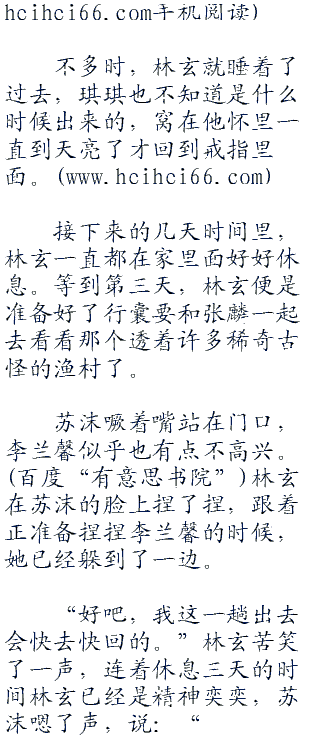 hcihci66.com手机阅读)
不多时，林玄就睡着了
过去，琪琪也不知道是什么
时候出来的，窝在他怀里一
直到天亮了才回到戒指里
面。(www.hcihci66.com)
接下来的几天时间里，
林玄一直都在家里面好好休
息。等到第三天，林玄便是
准备好了行囊要和张麟一起
去看看那个透着许多稀奇古
怪的渔村了。
苏沫噘着嘴站在门口，
李兰馨似乎也有点不高兴。
(百度“有意思书院”)林玄
在苏沫的脸上捏了捏，跟着
正准备捏捏李兰馨的时候，
她已经躲到了一边。
“好吧，我这一趟出去
会快去快回的。”林玄苦笑
了一声，连着休息三天的时
间林玄已经是精神奕奕，苏
沫嗯了声，说：“